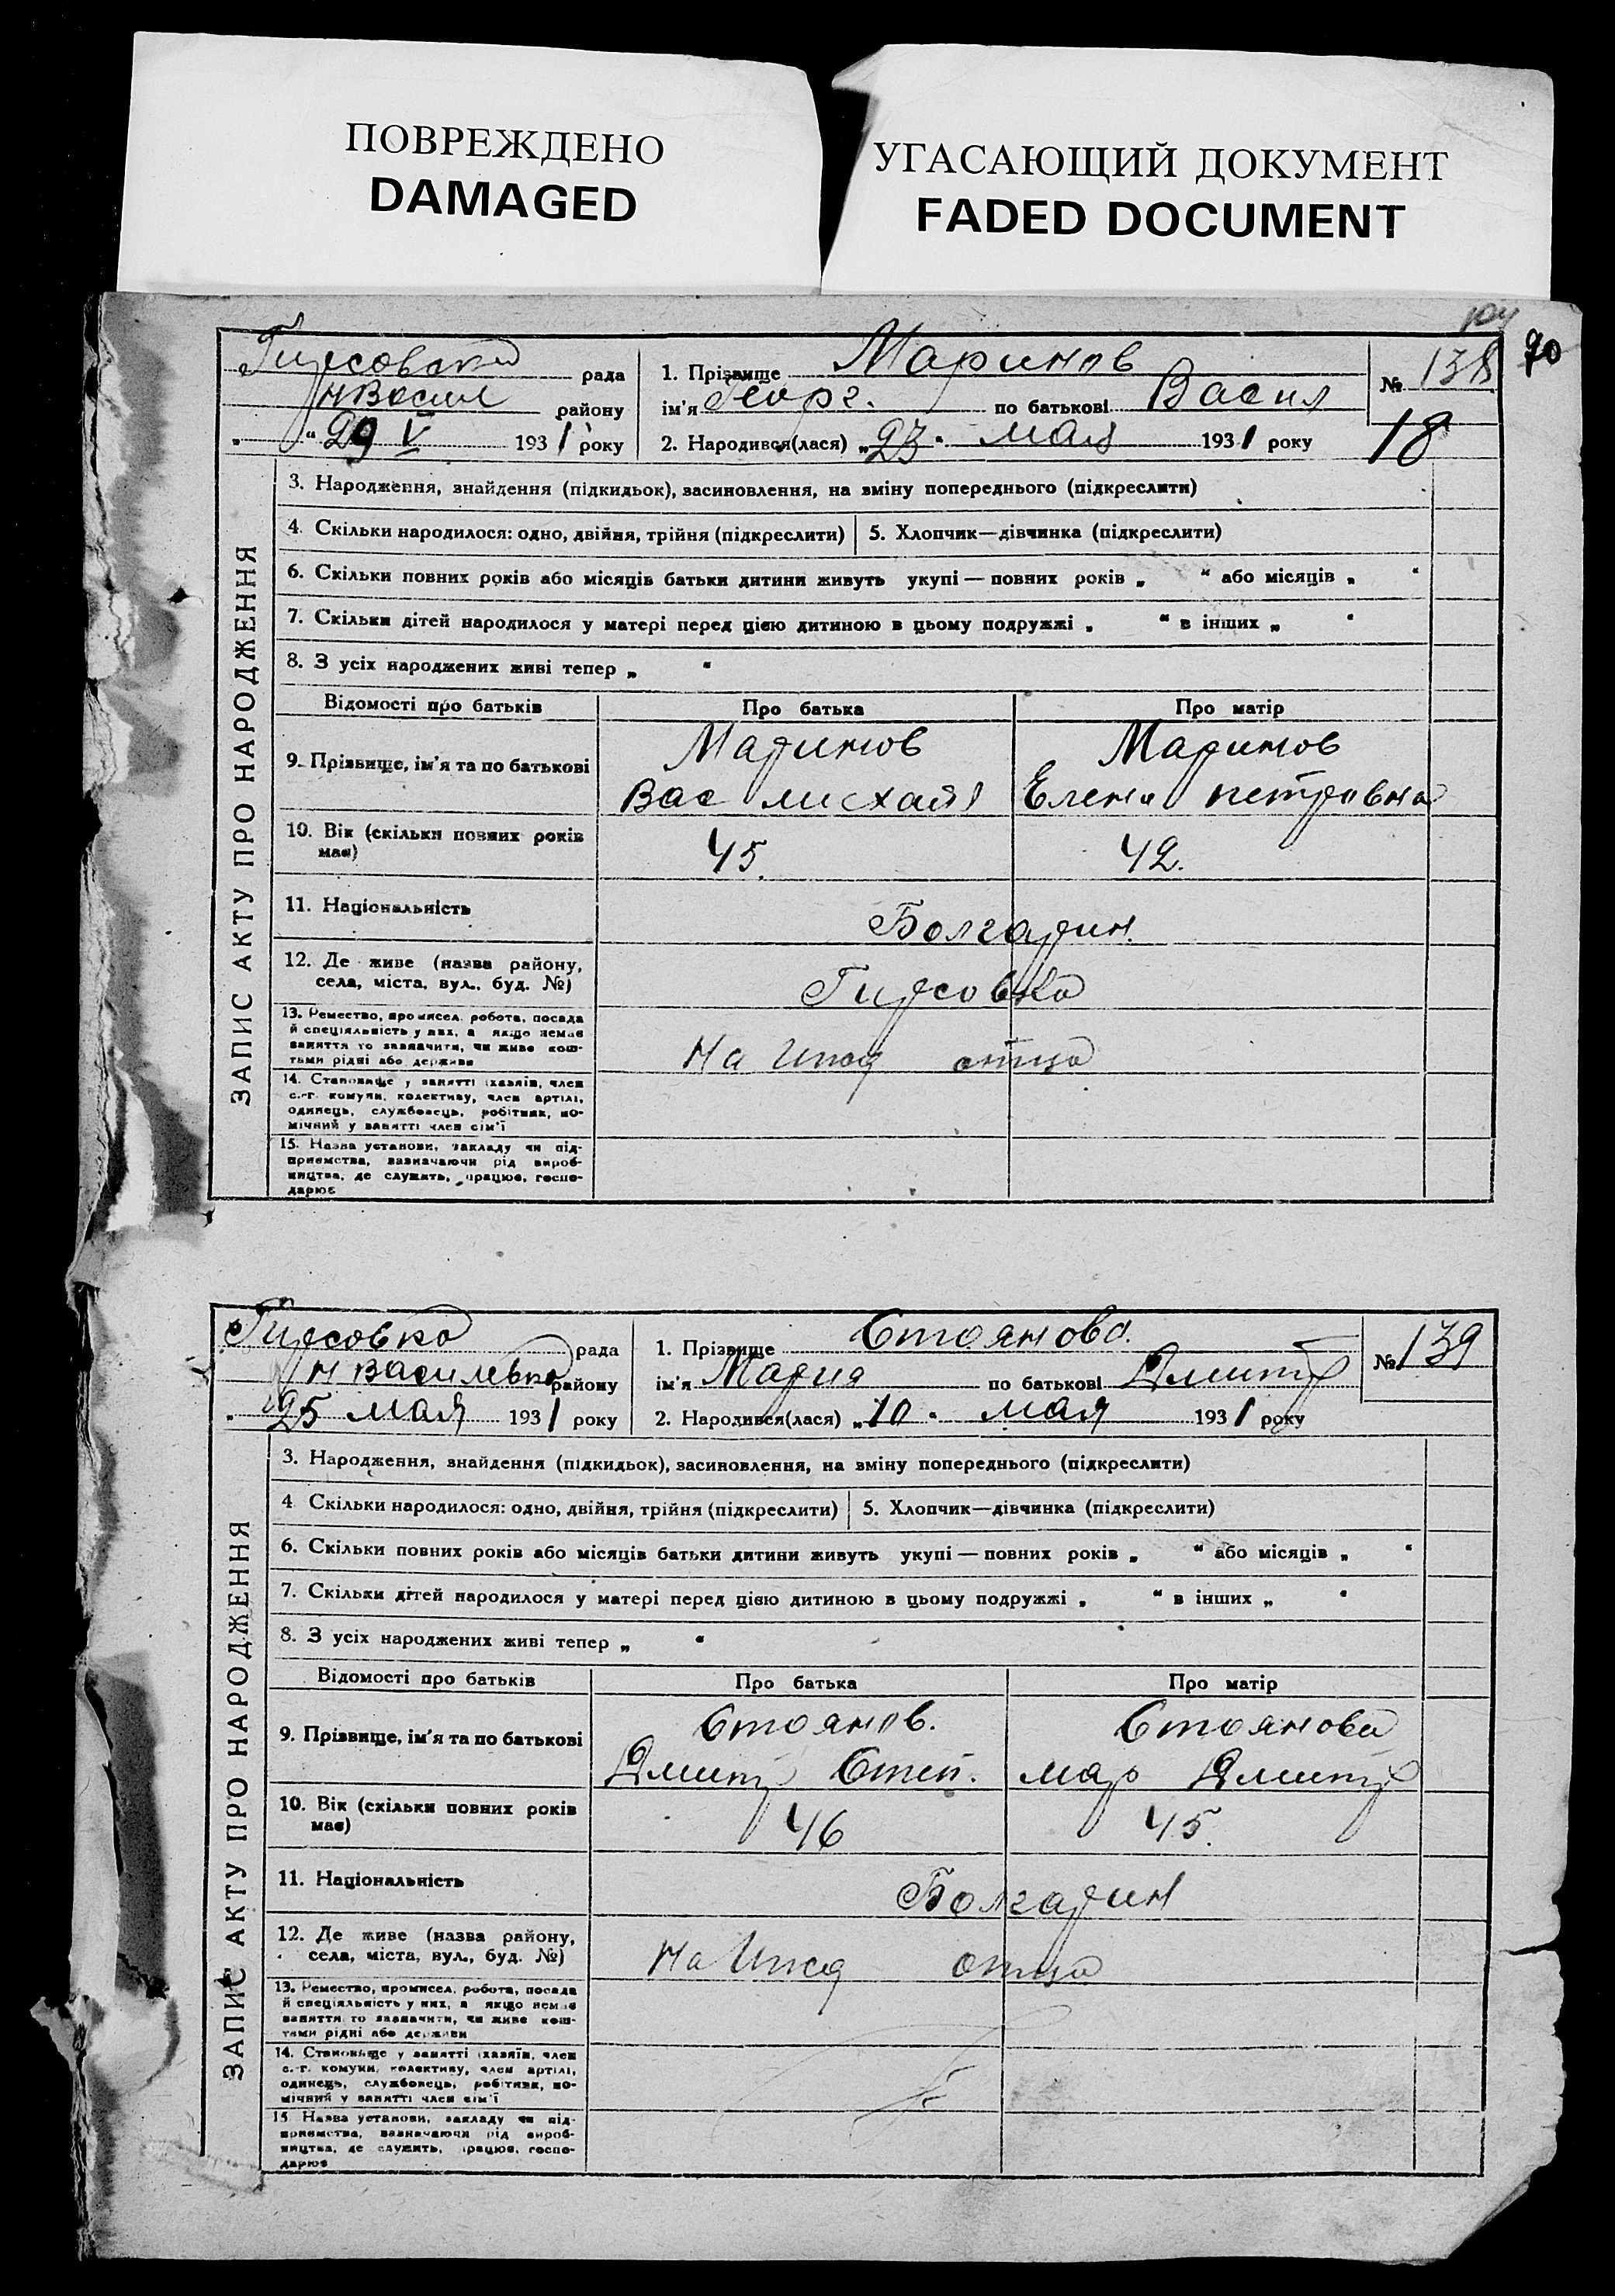 ПОВРЕЖДЕНО
DAMAGED
УГАСАЮЩИЙ ДОКУМЕНТ
FADED DOCUMENT
70
ЗАПИС АКТУ ПРО НАРОДЖЕННЯ
Гирсовка рада
Н Васил району
„29 V 1931 року
1. Прізвище Маринов
ім'я Георг. по батькові Васил
2. Народився(лася) „23" мая 1931 року
№ 138
18
3. Народження, знайдення (підкидьок), засиновлення, на зміну попереднього (підкреслити)
4. Скільки народилося: одно, двійня, трійня (підкреслити) 5. Хлопчик—дівчинка (підкреслити)
6. Скільки повних років або місяців батьки дитини живуть укупі — повних років „ " або місяців „ "
7. Скільки дітей народилося у матері перед цією дитиною в цьому подружжі „ " в інших „ "
8. З усіх народжених живі тепер „ "
Відомості про батьків Про батька Про матір
9. Прізвище, ім'я та по батькові Маринов Маринов
Вас михайл Елена петровна
10. Вік (скільки повних років має) 45. 42.
11. Національність Болгарин.
12. Де живе (назва району, села, міста, вул., буд. №) Гирсовка
13. Ремество, промисел, робота, посада
й спеціяльність у них, а якщо немає
заняття то зазначити, чи живе кош-
тами рідні або держави
На отца
14. Становище у занятті (хазяїн, член
с.-г. комуни, колективу, член артілі,
одинець, службовець, робітник, по-
мічний у занятті член сім'ї
15. Назва установи, закладу чи під-
приємства, зазначаючи рід вироб-
ництва, де служить, працює, госпо-
дарює
ЗАПИС АКТУ ПРО НАРОДЖЕННЯ
Гирсовка рада
Н Василевка району
„25 мая 1931 року
1. Прізвище Стоянова.
ім'я Мария по батькові Дмитр
2. Народився(лася) „10" мая 1931 року
№ 139
3. Народження, знайдення (підкидьок), засиновлення, на зміну попереднього (підкреслити)
4. Скільки народилося: одно, двійня, трійня (підкреслити) 5. Хлопчик—дівчинка (підкреслити)
6. Скільки повних років або місяців батьки дитини живуть укупі — повних років „ " або місяців „ "
7. Скільки дітей народилося у матері перед цією дитиною в цьому подружжі „ " в інших „ "
8. З усіх народжених живі тепер „ "
Відомості про батьків Про батька Про матір
9. Прізвище, ім'я та по батькові Стоянов. Стоянова
Дмитр Степ. мар Дмитр
10. Вік (скільки повних років має) 46 45.
11. Національність Болгарин
12. Де живе (назва району, села, міста, вул., буд. №) На отца
13. Ремество, промисел, робота, посада
й спеціяльність у них, а якщо немає
заняття то зазначити, чи живе кош-
тами рідні або держави
14. Становище у занятті (хазяїн, член
с.-г. комуни, колективу, член артілі,
одинець, службовець, робітник, по-
мічний у занятті член сім'ї
15. Назва установи, закладу чи під-
приємства, зазначаючи рід вироб-
ництва, де служить, працює, госпо-
дарює